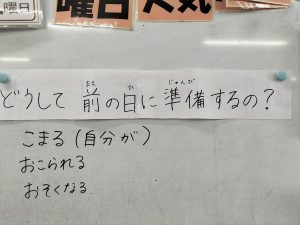 曜日
曜日
天気
どうして 前の日に 準備するの?
まえ ひ じゅんび
こまる (自分が)
おこられる
おそくなる